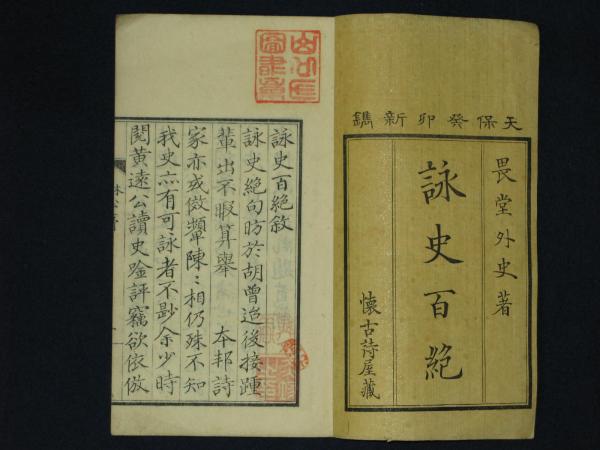 天保癸卯新鐫
畏堂外史著
詠史百絶
懐古詩屋藏
詠史百絶敘
詠史絶句昉於胡曾迨後接踵
輩出不暇算舉 本邦詩
家亦或倣顰陳〻相仍殊不知
我史亦有可詠者不尟余少時
閲黄遠公讀史唫評竊欲依倣